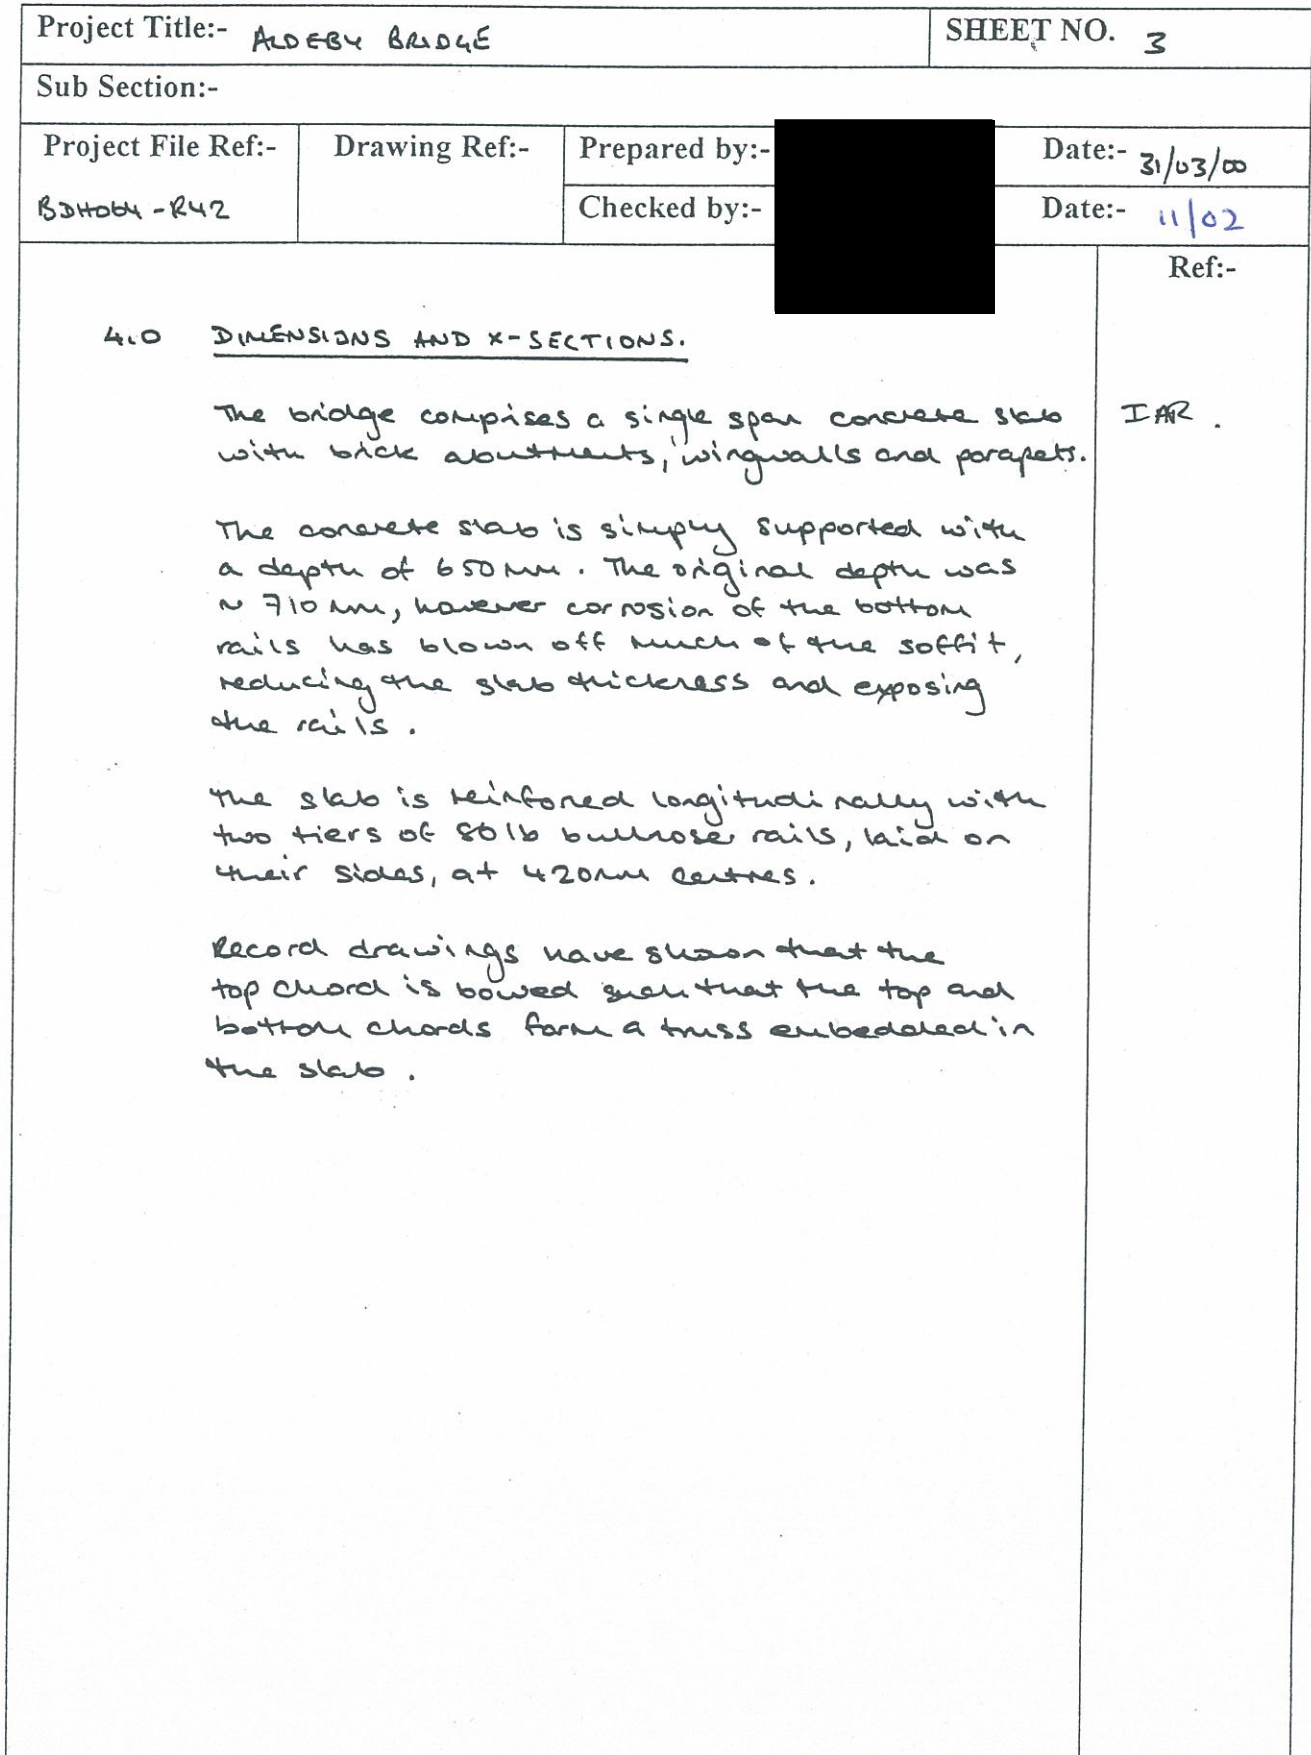 Project Title:- ALDEBY BRIDGE
SHEET NO. 3
Sub Section:-
Project File Ref:-
BDH064-R42
Drawing Ref:-
Prepared by:-
Date:- 31/03/00
Checked by:-
Date:- 11/02
Ref:-
4.0 DIMENSIONS AND X-SECTIONS.
The bridge comprises a single span concrete slab
IAR.
with brick abutments, wingwalls and parapets.
The concrete slab is simply supported with
a depth of 650mm. The original depth was
~ 710mm, however corrosion of the bottom
rails has blown off much of the soffit,
reducing the slab thickness and exposing
the rails.
The slab is reinforced longitudinally with
two tiers of 80lb bullnose rails, laid on
their sides, at 420mm centres.
Record drawings have shown that the
top chord is bowed such that the top and
bottom chords form a truss embedded in
the slab.